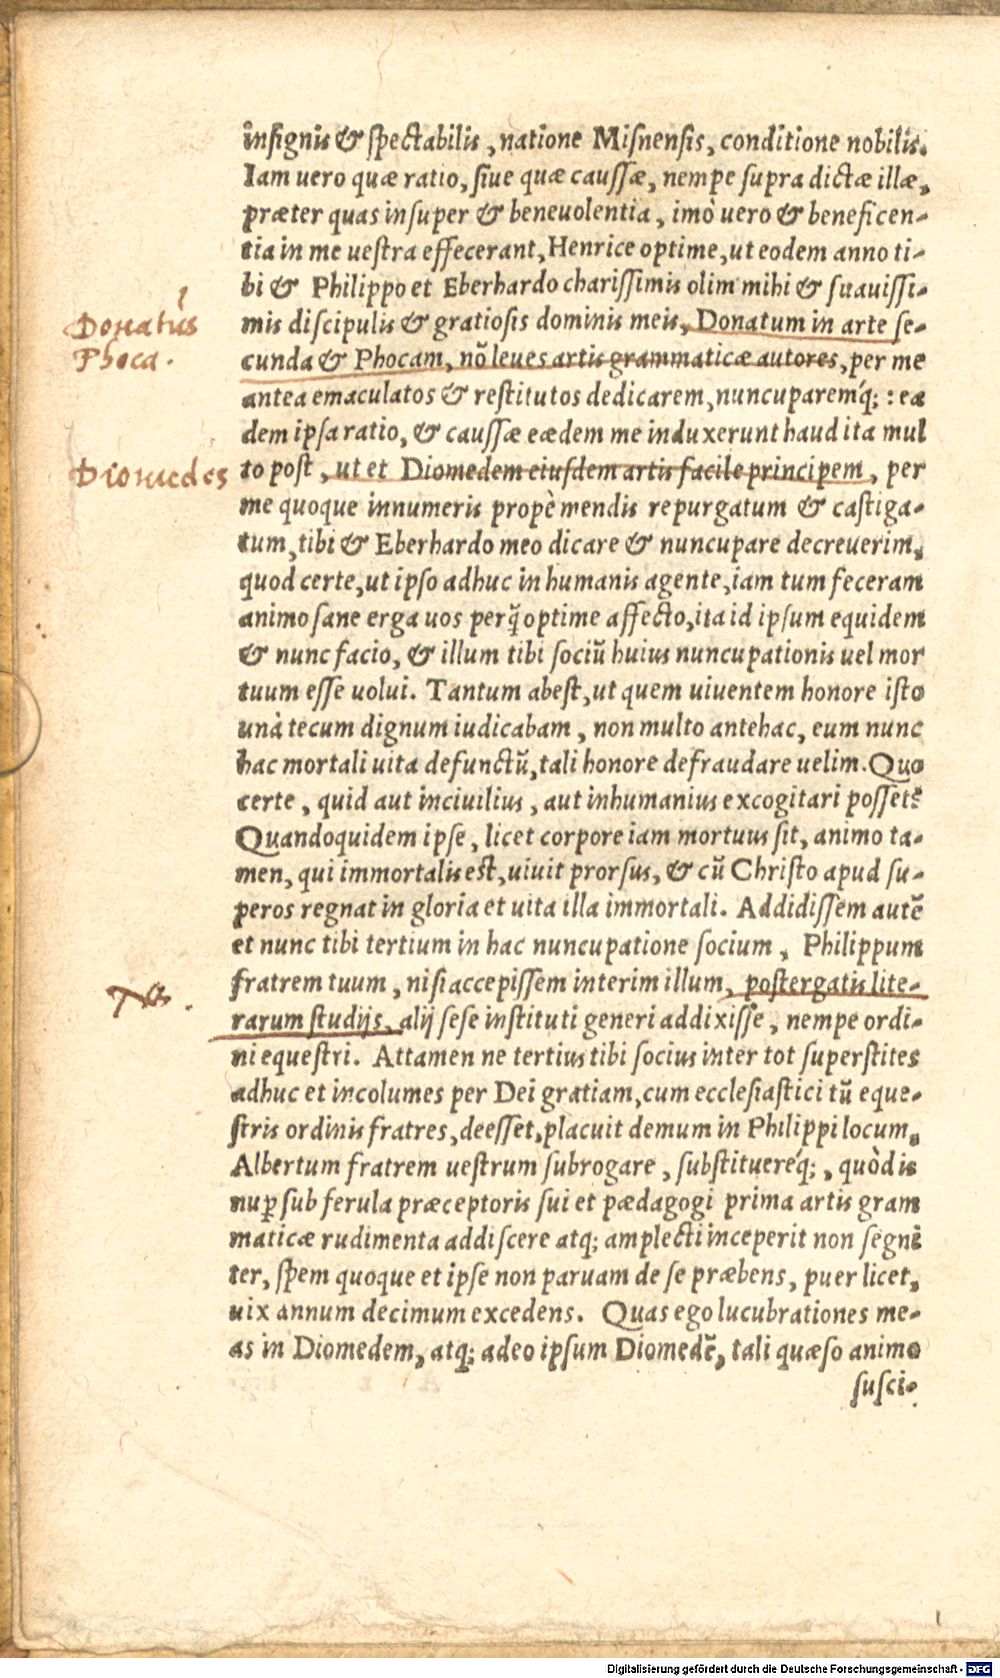 insignis & spectabilis, natione Misnensis, conditione nobilis.
Iam uero quæ ratio, siue quæ caussæ, nempe supra dictæ illæ,
præter quas insuper & beneuolentia, imò uero & beneficen-
tia in me uestra effecerant, Henrice optime, ut eodem anno ti-
bi & Philippo et Eberhardo charissimis olim mihi & suauissi-
Donatus
mis discipulis & gratiosis dominis meis, Donatum in arte se-
Phoca.
cunda & Phocam, nõ leues artis grammaticæ autores, per me
antea emaculatos & restitutos dedicarem, nuncuparemq́;: ea
dem ipsa ratio, & caussæ eædem me induxerunt haud ita mul
Diomedes
to post, ut et Diomedem eiusdem artis facile principem, per
me quoque innumeris propè mendis repurgatum & castiga-
tum, tibi & Eberhardo meo dicare & nuncupare decreuerim,
quod certe, ut ipso adhuc in humanis agente, iam tum feceram
animo sane erga uos perq̃ optime affecto, ita id ipsum equidem
& nunc facio, & illum tibi sociũ huius nuncupationis uel mor
tuum esse uolui. Tantum abest, ut quem uiuentem honore isto
unà tecum dignum iudicabam, non multo antehac, eum nunc
hac mortali uita defunctũ, tali honore defraudare uelim. Quo
certe, quid aut inciuilius, aut inhumanius excogitari posset?
Quandoquidem ipse, licet corpore iam mortuus sit, animo ta-
men, qui immortalis est, uiuit prorsus, & cũ Christo apud su-
peros regnat in gloria et uita illa immortali. Addidissem autẽ
et nunc tibi tertium in hac nuncupatione socium, Philippum
fratrem tuum, nisi accepissem interim illum, postergatis lite-
rarum studijs, alij sese instituti generi addixisse, nempe ordi-
ni equestri. Attamen ne tertius tibi socius inter tot superstites
adhuc et incolumes per Dei gratiam, cum ecclesiastici tũ eque-
stris ordinis fratres, deesset, placuit demum in Philippi locum,
Albertum fratrem uestrum subrogare, substituereq́;, quòd is
nuꝑ sub ferula præceptoris sui et pædagogi prima artis gram
maticæ rudimenta addiscere atq; amplecti inceperit non segni
ter, spem quoque et ipse non paruam de se præbens, puer licet,
uix annum decimum excedens. Quas ego lucubrationes me-
as in Diomedem, atq; adeo ipsum Diomedẽ, tali quæso animo
susci-
Digitalisierung gefördert durch die Deutsche Forschungsgemeinschaft - DFG